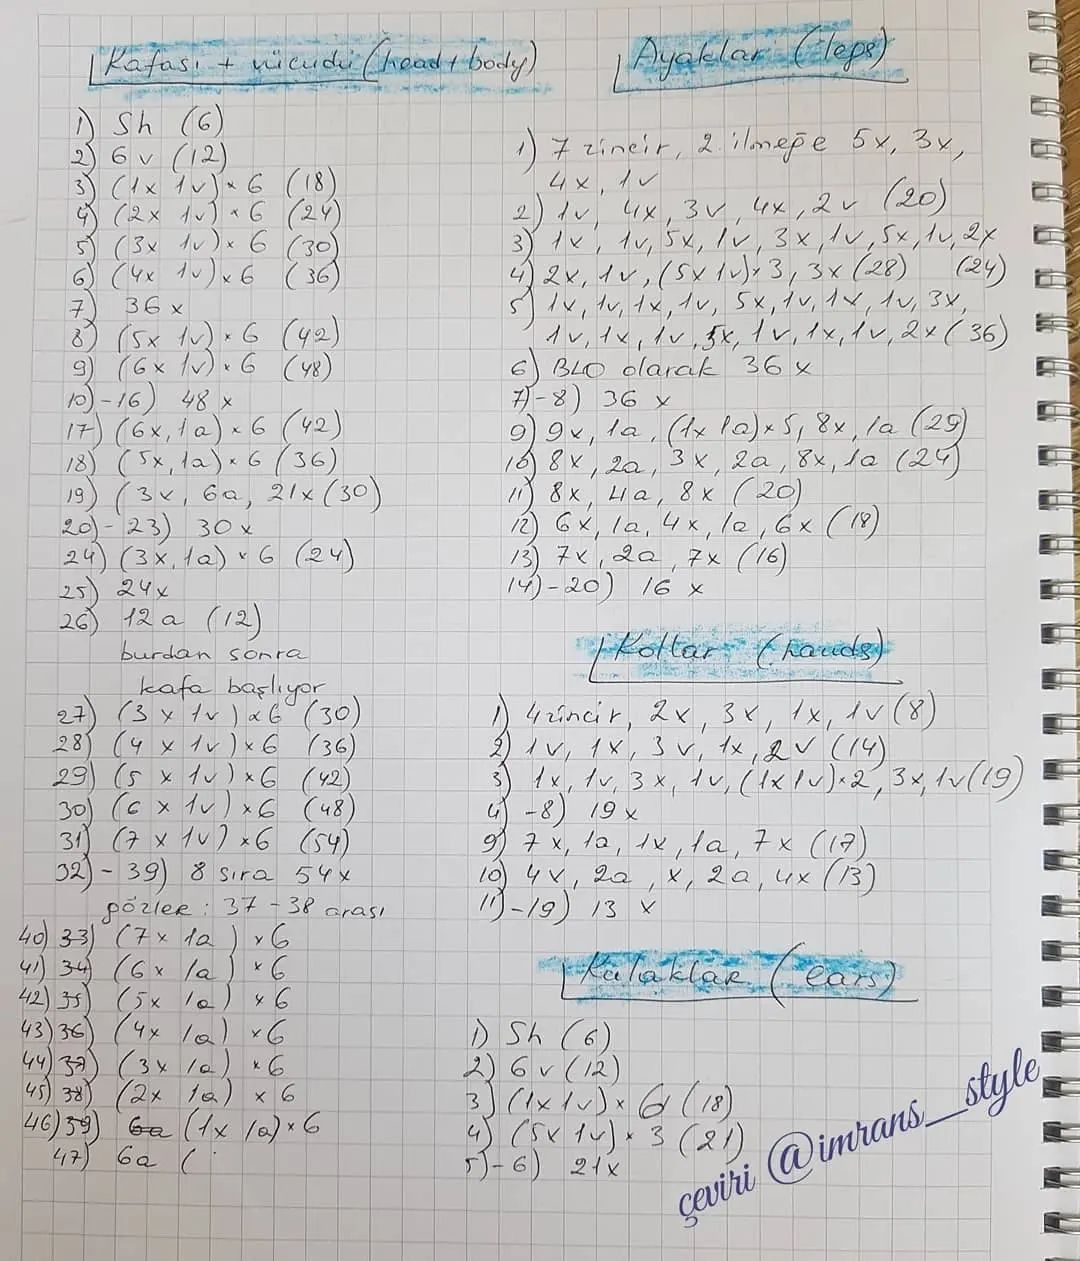 Kafası + vücudu (head+body)
1) Sh (6)
2) 6v (12)
3) (1x 1v) × 6 (18)
4) (2x 1v) × 6 (24)
5) (3x 1v) × 6 (30)
6) (4x 1v) × 6 (36)
7) 36x
8) (5x 1v) × 6 (42)
9) (6x 1v) × 6 (48)
10)-16) 48x
17) (6x, 1a) × 6 (42)
18) (5x, 1a) × 6 (36)
19) (3x, 6a, 21x (30)
20)-23) 30x
24) (3x, 1a) × 6 (24)
25) 24x
26) 12a (12)
burdan sonra
kafa başlıyor
27) (3x 1v) × 6 (30)
28) (4x 1v) × 6 (36)
29) (5x 1v) × 6 (42)
30) (6x 1v) × 6 (48)
31) (7x 1v) × 6 (54)
32)-39) 8 sıra 54x
gözler: 37-38 arası
40) 33) (7x 1a) × 6
41) 34) (6x 1a) × 6
42) 35) (5x 1a) × 6
43) 36) (4x 1a) × 6
44) 37) (3x 1a) × 6
45) 38) (2x 1a) × 6
46) 39) 6a (1x 1a) × 6
47) 6a (
Ayaklar (legs)
1) 7 zincir, 2. ilmeğe 5x, 3x,
4x, 1v
2) 1v, 4x, 3v, 4x, 2v (20)
3) 1x, 1v, 5x, 1v, 3x, 1v, 5x, 1v, 2x
(24)
4) 2x, 1v, (5x 1v) × 3, 3x (28)
5) 1x, 1v, 1x, 1v, 5x, 1v, 1x, 1v, 3x,
1v, 1x, 1v, 5x, 1v, 1x, 1v, 2x (36)
6) BLO olarak 36x
7)-8) 36x
9) 9x, 1a, (1x 1a) × 5, 8x, 1a (29)
10) 8x, 2a, 3x, 2a, 8x, 1a (24)
11) 8x, 4a, 8x (20)
12) 6x, 1a, 4x, 1a, 6x (18)
13) 7x, 2a, 7x (16)
14)-20) 16x
Kollar (hands)
1) 4 zincir, 2x, 3x, 1x, 1v (8)
2) 1v, 1x, 3v, 1x, 2v (14)
3) 1x, 1v, 3x, 1v, (1x 1v) × 2, 3x, 1v (19)
4)-8) 19x
9) 7x, 1a, 1x, 1a, 7x (17)
10) 4x, 2a, x, 2a, 4x (13)
11)-19) 13x
Kulaklar (ears)
1) Sh (6)
2) 6v (12)
3) (1x 1v) × 6 (18)
4) (5x 1v) × 3 (21)
5)-6) 21x
çeviri @imrans__style